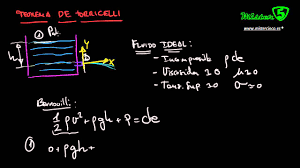 TEOREMA DE TORRICELLI
Misterio 5
www.mistercinco.es
① Pat
h
Y
X
FLUIDO IDEAL:
- Incompresib ρ cte
- Viscosidad ≈ 0 μ≈0
- Tens. Sup ≈ 0 σ≈0
Bernoulli:
1/2 ρv² + ρgh + P = cte
① 0 + ρgh +